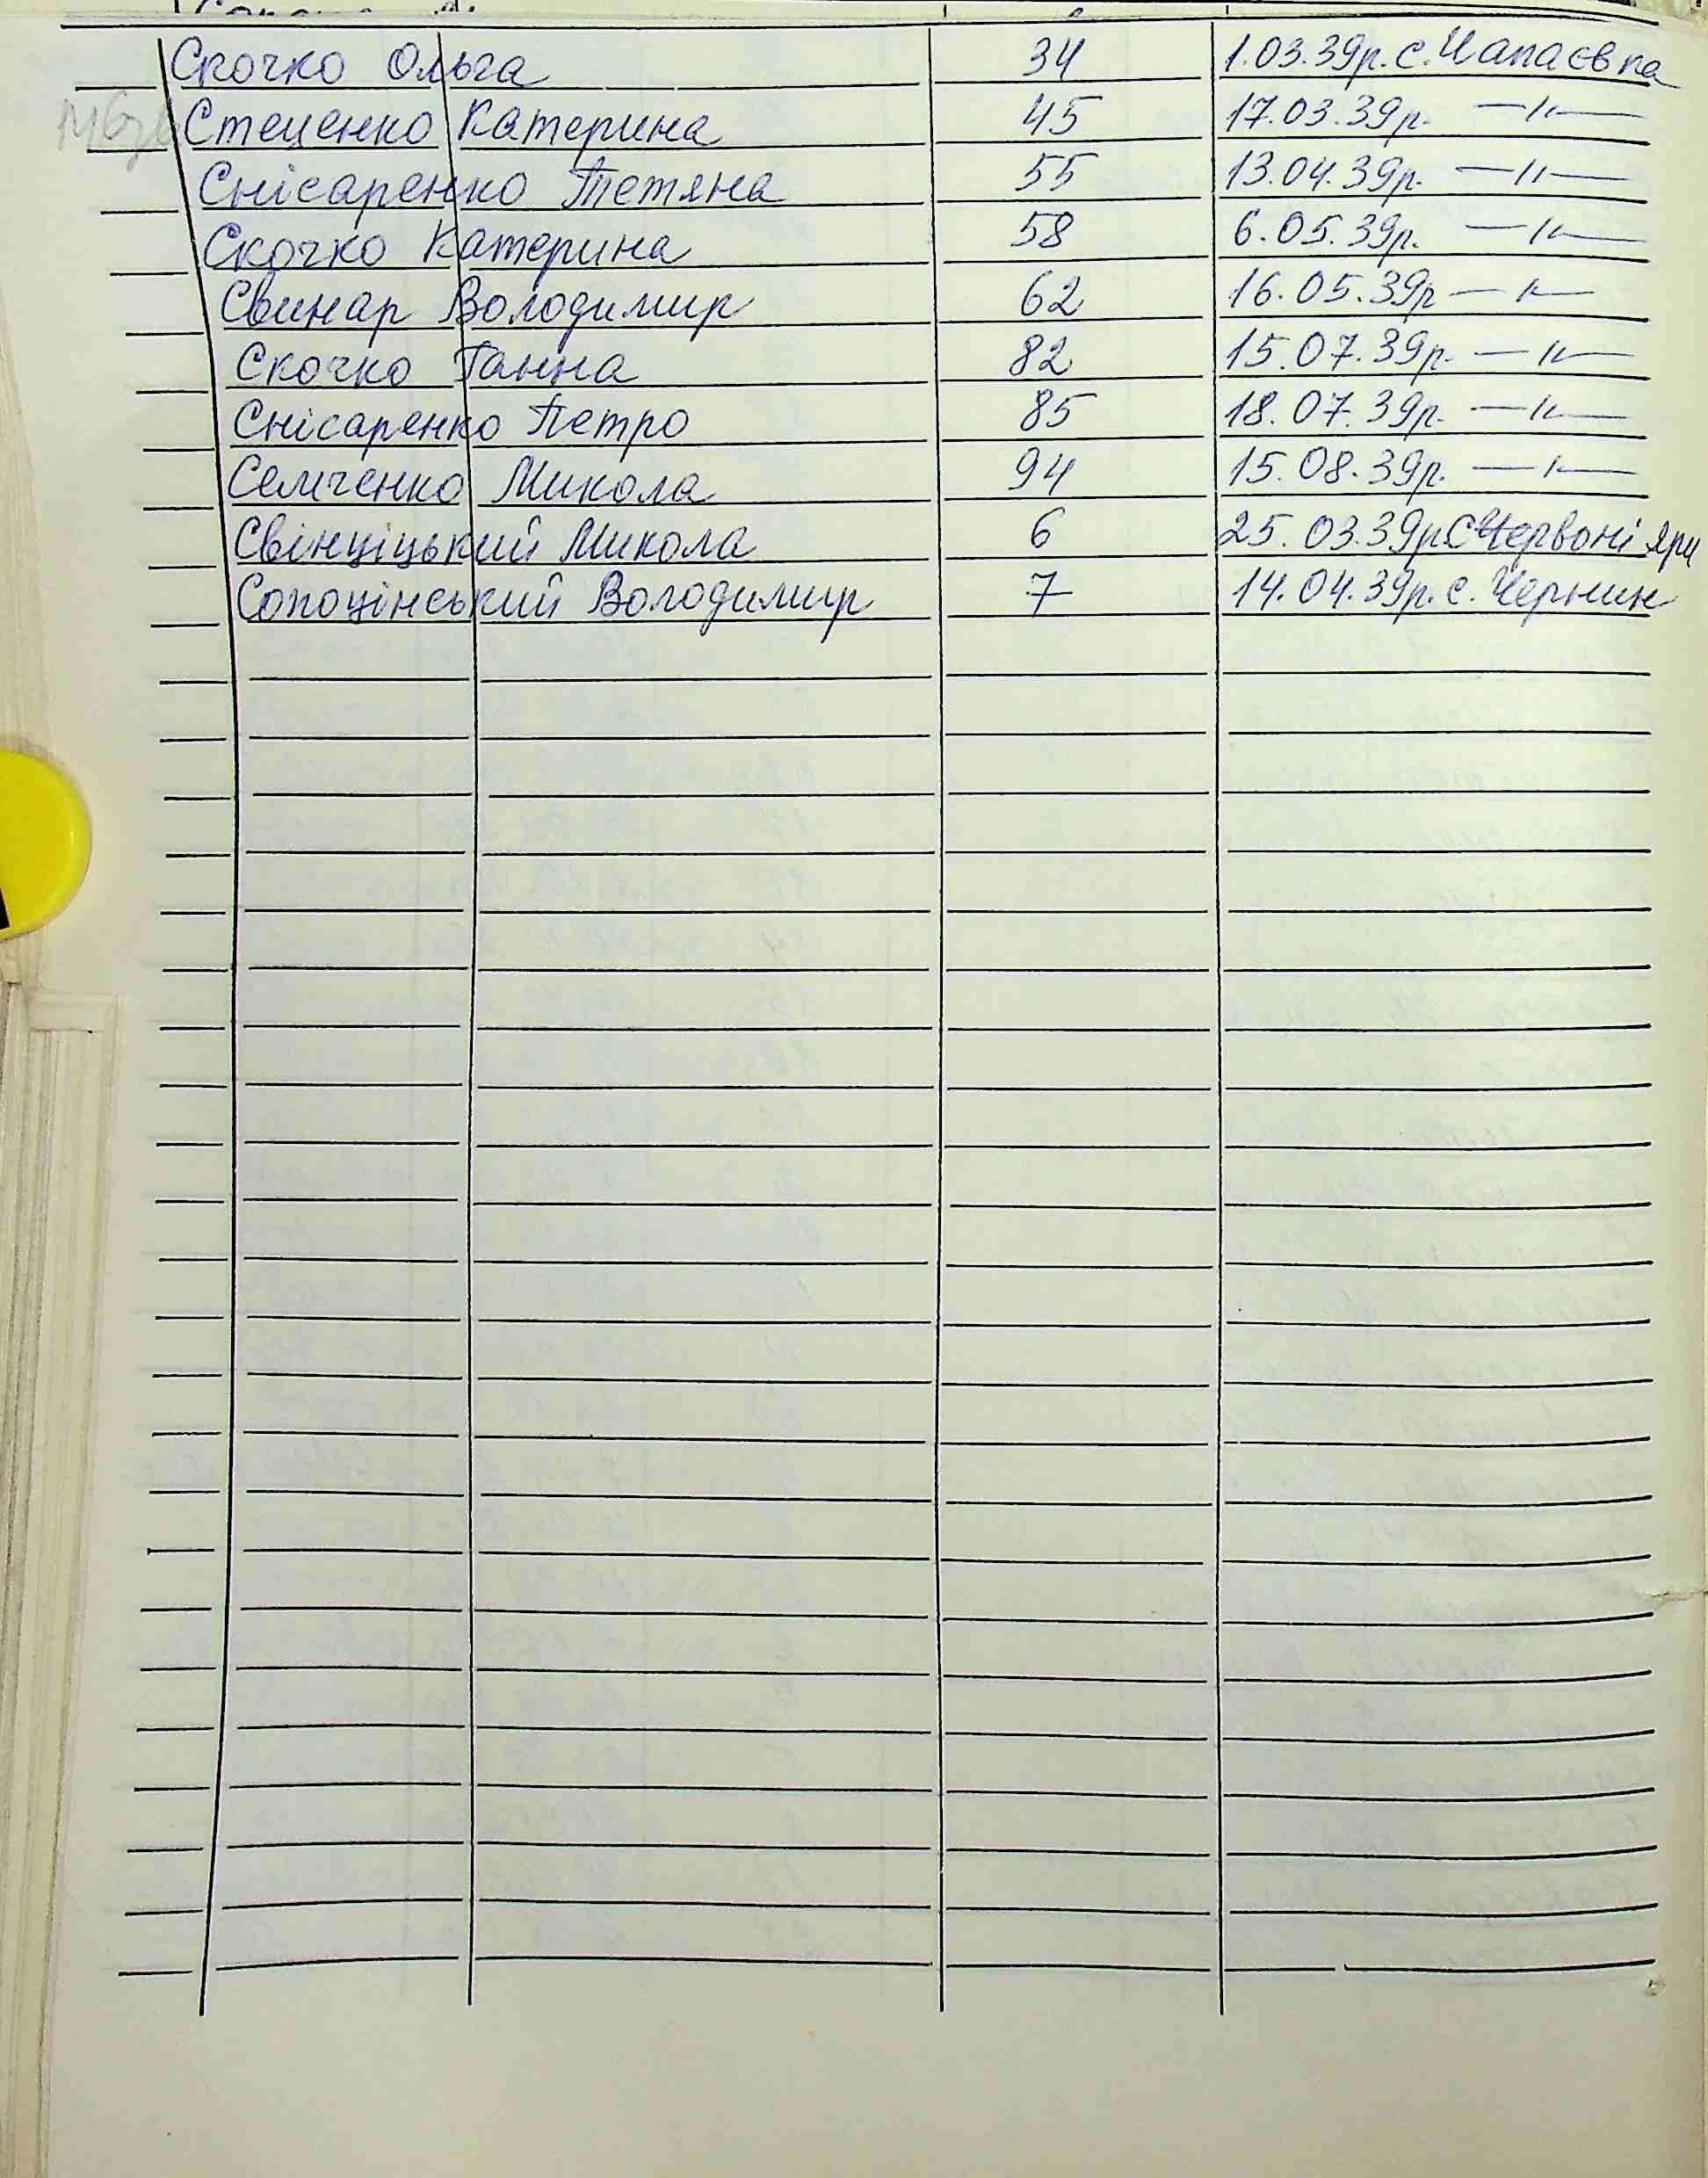 Скочко Ольга 34 1.03.39р. с. Чапаєвка
Стеценко Катерина 45 17.03.39р. —〃—
Снісаренко Тетяна 55 13.04.39р. —〃—
Скочко Катерина 58 6.05.39р. —〃—
Свинар Володимир 62 16.05.39р —〃—
Скочко Ганна 82 15.07.39р. —〃—
Снісаренко Петро 85 18.07.39р. —〃—
Семченко Микола 94 15.08.39р. —〃—
Свінціцький Микола 6 25.03.39р с Червоні яри
Сопоцінський Володимир 7 14.04.39р. с. Чернин